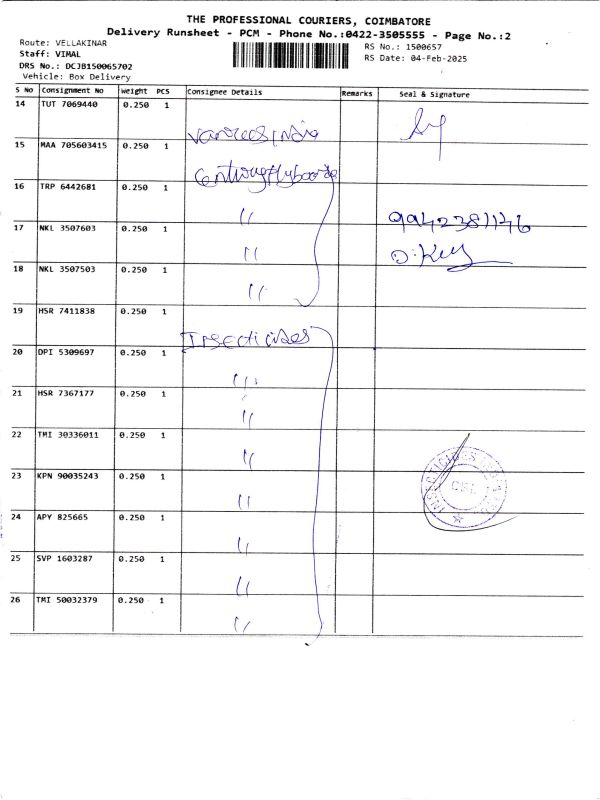 THE PROFESSIONAL COURIERS, COIMBATORE
Delivery Runsheet - PCM - Phone No.:0422-3505555 - Page No.:2
Route: VELLAKINAR
Staff: VIMAL
DRS No.: DCJB150065702
Vehicle: Box Delivery
RS No.: 1500657
RS Date: 04-Feb-2025
S No Consignment No Weight PCS Consignee Details Remarks Seal & Signature
14 TUT 7069440 0.250 1
15 MAA 705603415 0.250 1
16 TRP 6442681 0.250 1 〃
9942381146
17 NKL 3507603 0.250 1 〃
18 NKL 3507503 0.250 1 〃
19 HSR 7411838 0.250 1 Insecticides
20 DPI 5309697 0.250 1 〃
21 HSR 7367177 0.250 1 〃
22 TMI 30336011 0.250 1 〃
23 KPN 90035243 0.250 1 〃
24 APY 825665 0.250 1 〃
25 SVP 1603287 0.250 1 〃
26 TMI 50032379 0.250 1 〃